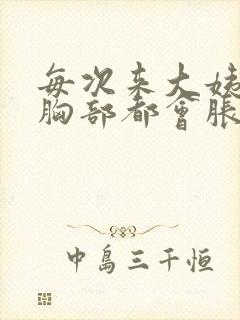 每次来大姨
胸部都會脹
中島三千恒